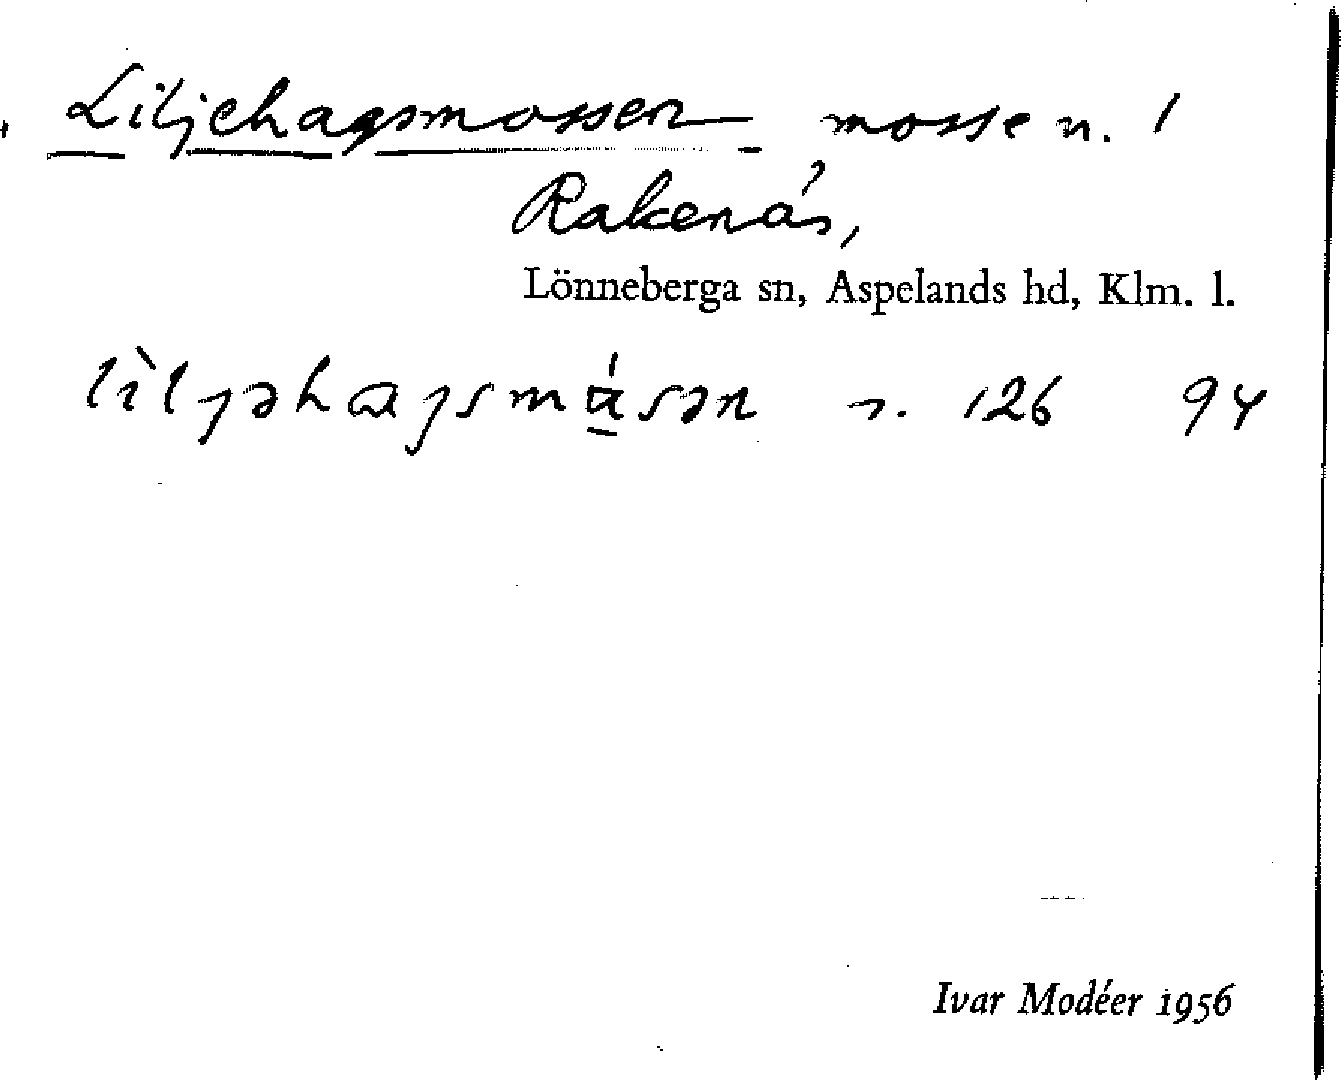 Liljehagsmossen mosse n. 1
Rakenäs,
Lönneberga sn, Aspelands hd, Klm. l.
n. 126 94
Ivar Modéer 1956